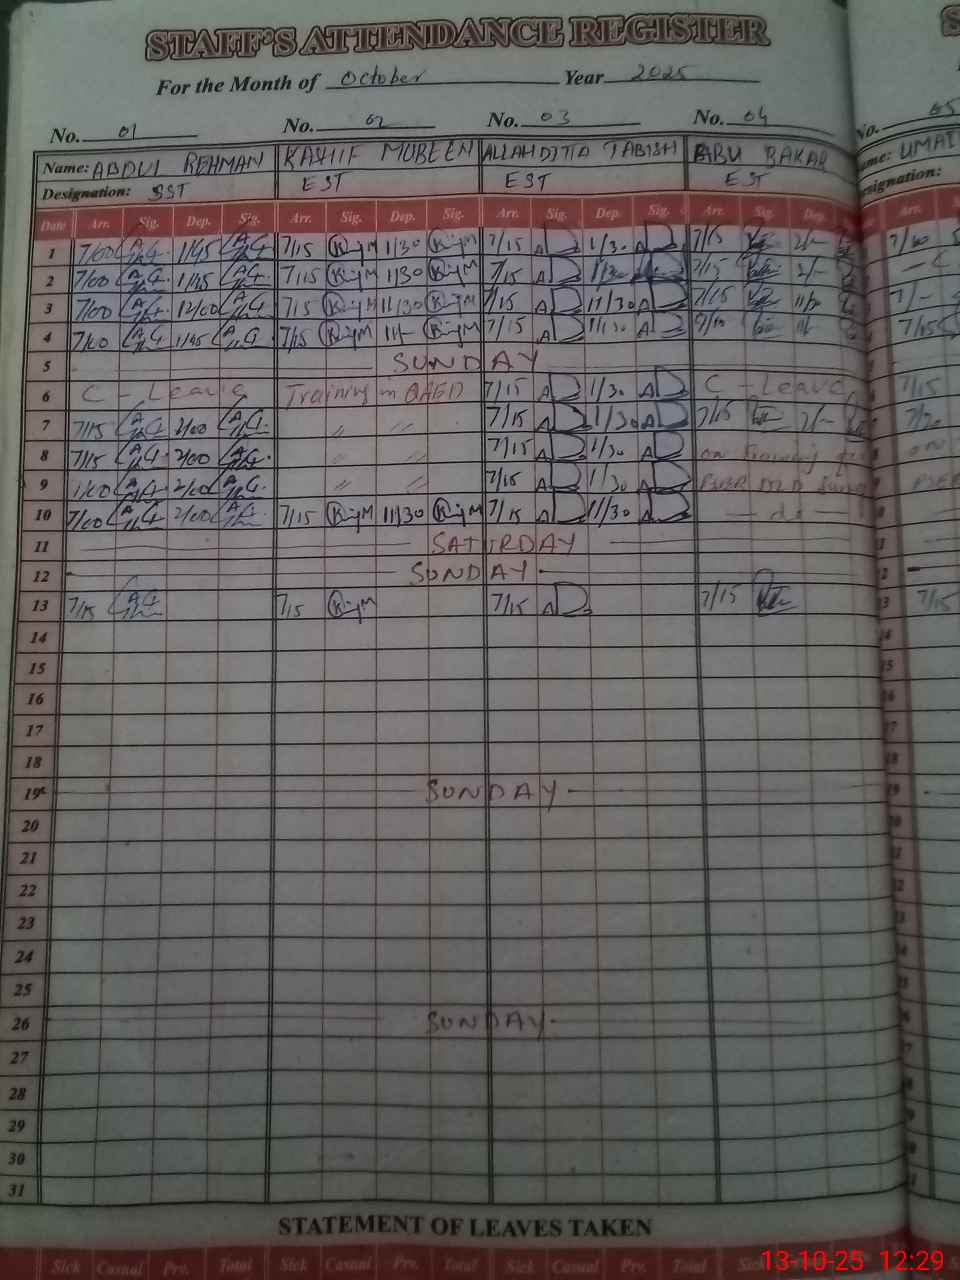 STAFF'S ATTENDANCE REGISTER
For the Month of October Year 2025
No. 01 No. 02 No. 03 No. 04 No. 05
Name: ABDUL REHMAN KASHIF MUBEEN ALLAHDITTA TABISH ABU BAKAR
Designation: SST EST EST EST Designation:
Date Arr. Sig. Dep. Sig. Arr. Sig. Dep. Sig. Arr. Sig. Dep. Sig. Arr. Sig. Dep. Arr.
1 7/00 1/45 7/15 1/30 7/15 1/30 7/15 2/-
2 7/00 1/45 7/15 1/30 7/15 7/15 2/-
3 7/00 12/00 7/15 11/30 7/15 11/30 7/15
4 7/00 1/45 7/15 11/- 7/15 11/30
5 SUNDAY
6 C - Leave Training in 7/15 1/30 C - Leave
7 7/15 2/00 " " 7/15 1/30 7/15 2/-
8 7/15 2/00 " " 7/15 1/30 on training
9 2/00 " " 7/15 1/30
10 7/00 2/00 7/15 11/30 7/15 11/30
11 SATURDAY
12 SUNDAY
13 7/15 7/15 7/15 7/15 7/15
14
15
16
17
18
19 SUNDAY
20
21
22
23
24
25
26 SUNDAY
27
28
29
30
31
STATEMENT OF LEAVES TAKEN
Sick Casual Prv. Total Sick Casual Prv. Total Sick Casual Prv. Total Sick
13-10-25 12:29